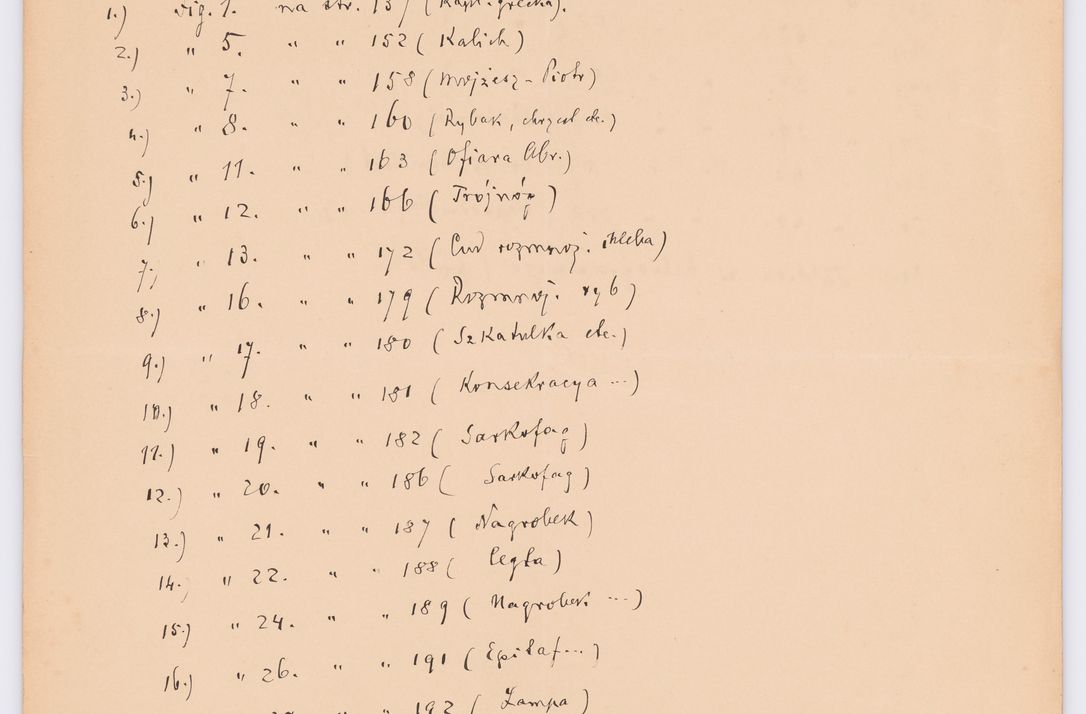 1.) fig. 1. na str. 137 (Kapl. grecka).
2.) " 5. " " 152 (Kalich)
3.) " 7. " " 158 (Mojżesz - Piotr)
4.) " 8. " " 160 (Rybak, chrzest etc.)
5.) " 11. " " 163 (Ofiara Abr.)
6.) " 12. " " 166 (Trójnóg)
7.) " 13. " " 172 (Cud rozmnoż. chleba)
8.) " 16. " " 179 (Rozmnoż. ryb)
9.) " 17. " " 180 (Szkatułka etc.)
10.) " 18. " " 181 (Konsekracya ...)
11.) " 19. " " 182 (Sarkofag)
12.) " 20. " " 186 (Sarkofag)
13.) " 21. " " 187 (Nagrobek)
14.) " 22. " " 188 (Cegła)
15.) " 24. " " 189 (Nagrobek ...)
16.) " 26. " " 191 (Epitaf...)
" " 192 (Lampa)